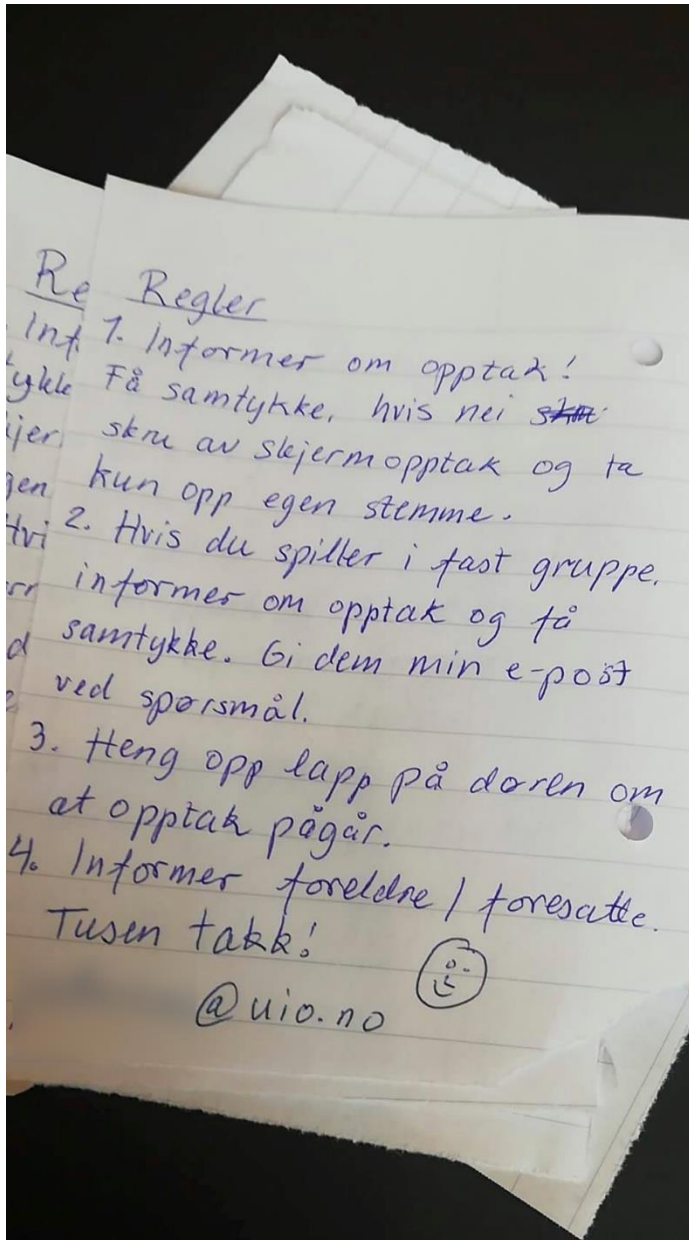 Regler
1. Informer om opptak!
Få samtykke, hvis nei
skru av skjermopptak og ta
kun opp egen stemme.
2. Hvis du spiller i fast gruppe,
informer om opptak og få
samtykke. Gi dem min e-post
ved spørsmål.
3. Heng opp lapp på døren om
at opptak pågår.
4. Informer foreldre / foresatte.
Tusen takk!
@uio.no